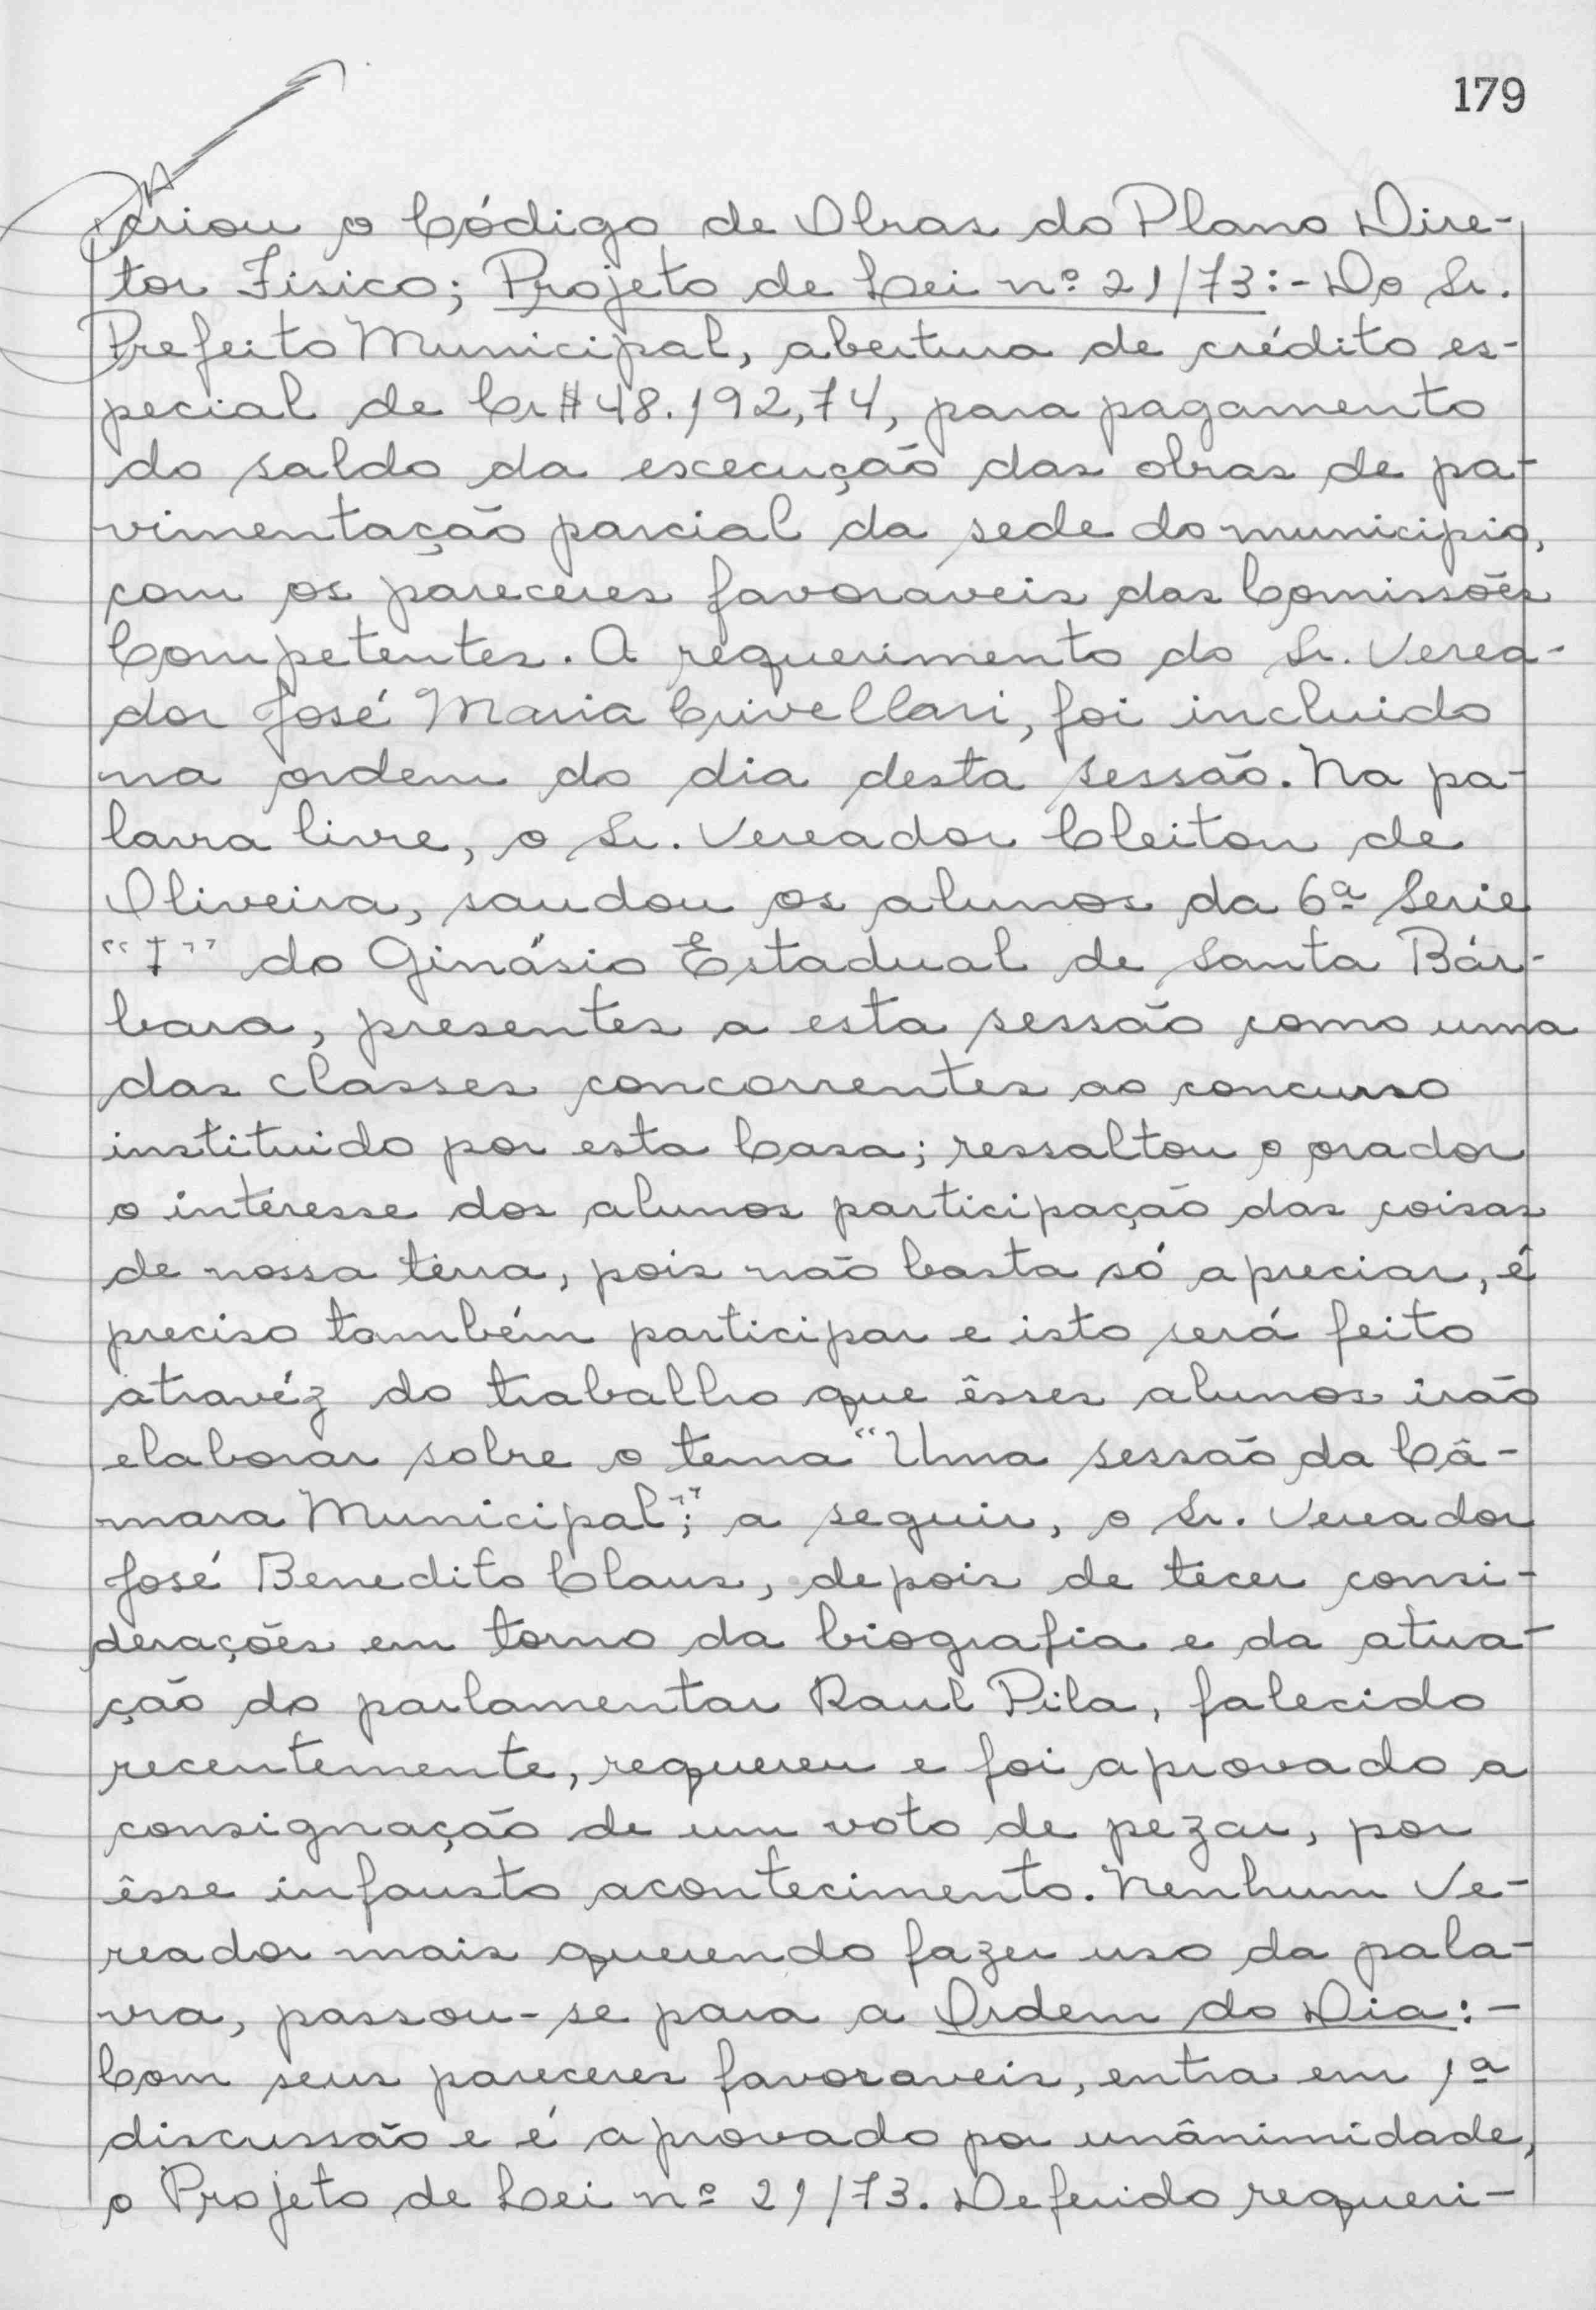 179
criou o Código de Obras do Plano Dire-
tor Fisico; Projeto de Lei nº 21/73:- Do Sr.
Prefeito Municipal, abertura de crédito es-
pecial de Cr$ 48.192,74, para pagamento
do saldo da escecução das obras de pa-
vimentação parcial da sede do municipio,
com os pareceres favoraveis das Comissões
Competentes. A requerimento do Sr. Verea-
dor José Maria Crivellari, foi incluido
na ordem do dia desta sessão. Na pa-
lavra livre, o Sr. Vereador Cleiton de
Oliveira, saudou os alunos da 6ª Serie
"I" do Ginásio Estadual de Santa Bár-
bara, presentes a esta sessão como uma
das classes concorrentes ao concurso
instituido por esta Casa; ressaltou o orador
o interesse dos alunos participação das coisas
de nossa terra, pois não basta só apreciar, é
preciso também participar e isto será feito
atravéz do trabalho que êsses alunos irão
elaborar sobre o tema "Uma sessão da Câ-
mara Municipal"; a seguir, o Sr. Vereador
José Benedito Claus, depois de tecer consi-
derações em torno da biografia e da atua-
ção do parlamentar Raul Pila, falecido
recentemente, requereu e foi aprovado a
consignação de um voto de pezar, por
êsse infausto acontecimento. Nenhum Ve-
reador mais querendo fazer uso da pala-
vra, passou-se para a Ordem do Dia:-
Com seus pareceres favoraveis, entra em 1ª
discussão e é aprovado por unânimidade,
o Projeto de Lei nº 21/73. Deferido requeri-